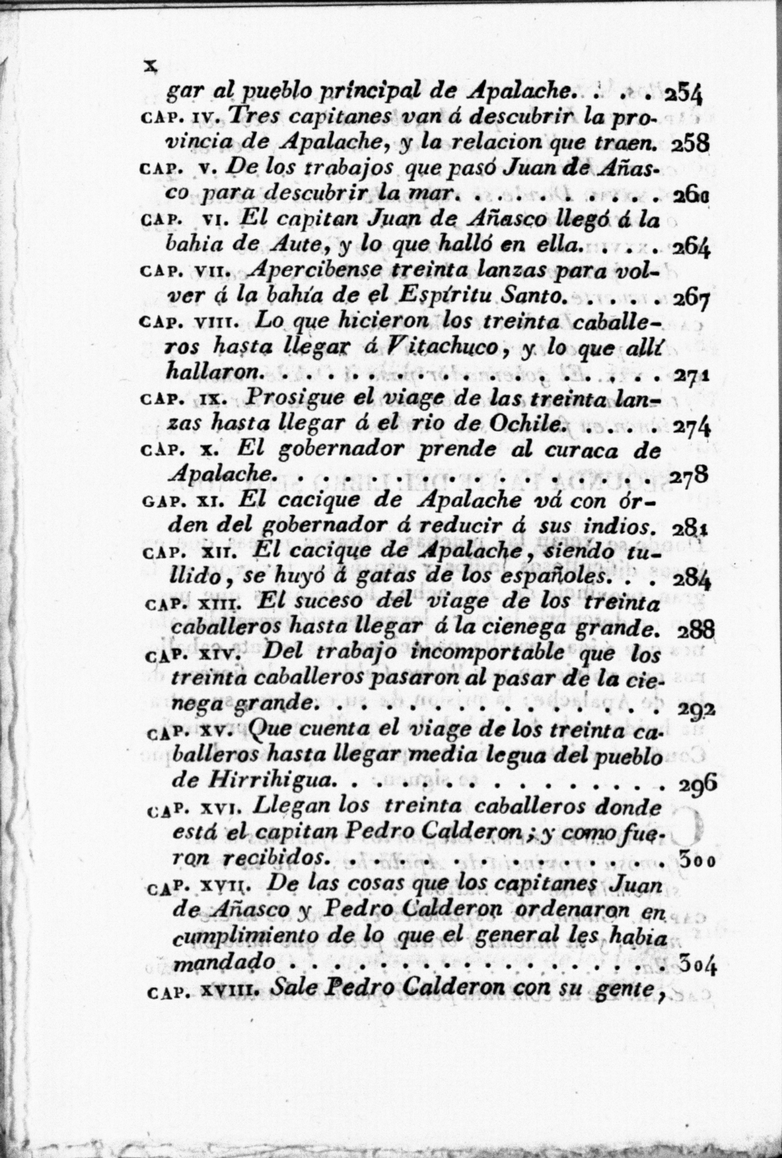 x
gar al pueblo principal de Apalache. . . . . 254
CAP. IV. Tres capitanes van á descubrir la pro-
vincia de Apalache, y la relacion que traen. 258
CAP. V. De los trabajos que pasó Juan de Añas-
co para descubrir la mar. . . . . . . . . . . 260
CAP. VI. El capitan Juan de Añasco llegó á la
bahia de Aute, y lo que halló en ella. . . . . 264
CAP. VII. Apercibense treinta lanzas para vol-
ver á la bahía de el Espíritu Santo. . . . . . 267
CAP. VIII. Lo que hicieron los treinta caballe-
ros hasta llegar á Vitachuco, y lo que allí
hallaron. . . . . . . . . . . . . . . . . . . 271
CAP. IX. Prosigue el viage de las treinta lan-
zas hasta llegar á el rio de Ochile. . . . . . 274
CAP. X. El gobernador prende al curaca de
Apalache. . . . . . . . . . . . . . . . . . . 278
GAP. XI. El cacique de Apalache vá con ór-
den del gobernador á reducir á sus indios. 281
CAP. XII. El cacique de Apalache, siendo tu-
llido, se huyó á gatas de los españoles. . . 284
CAP. XIII. El suceso del viage de los treinta
caballeros hasta llegar á la cienega grande. 288
CAP. XIV. Del trabajo incomportable que los
treinta caballeros pasaron al pasar de la cie-
nega grande. . . . . . . . . . . . . . . . 292
CAP. XV. Que cuenta el viage de los treinta ca-
balleros hasta llegar media legua del pueblo
de Hirrihigua. . . . . . . . . . . . . . . 296
CAP. XVI. Llegan los treinta caballeros donde
está el capitan Pedro Calderon; y como fue-
ron recibidos. . . . . . . . . . . . . . . 300
CAP. XVII. De las cosas que los capitanes Juan
de Añasco y Pedro Calderon ordenaron en
cumplimiento de lo que el general les habia
mandado . . . . . . . . . . . . . . . . . . 304
CAP. XVIII. Sale Pedro Calderon con su gente,